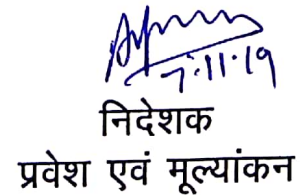 7.11.19
निदेशक
प्रवेश एवं मूल्यांकन